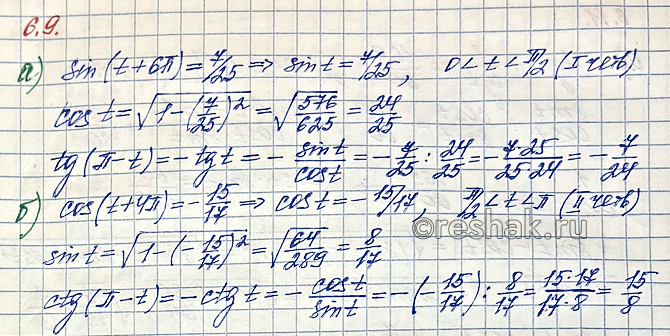 6.9.
а) sin(t+6π)=7/25 ⇒ sin t=7/25, 0<t<π/2 (I четв)
cos t=√(1-(7/25)²)=√(576/625)=24/25
tg(π-t)=-tg t=-sin t/cos t=-7/25:24/25=-7·25/25·24=-7/24
б) cos(t+4π)=-15/17 ⇒ cos t=-15/17, π/2<t<π (II четв)
sin t=√(1-(-15/17)²)=√(64/289)=8/17
ctg(π-t)=-ctg t=-cos t/sin t=-(-15/17):8/17=15·17/17·8=15/8
©reshak.ru